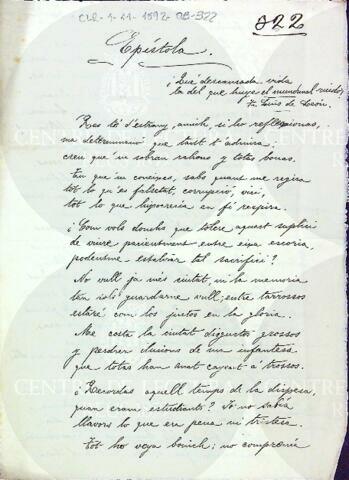 CLR-1-21-1892-08-322
322
Epístola.
¡Qué descansada vida
la del que huye el mundanal ruido!
Fr. Luis de León.
Res té d'estrany, amich, si ho reflexionas,
ma determinació que tant t'admira:
creu que 'n sobran rahons y totas bonas.
Tú que 'm coneixes, sabs quant me regira
tot lo qu'es falsetat, corrupció, vici,
tot lo que hipocresia en fí respira.
¿Com vols donchs que tolere aquest suplici
de viure pacientment entre eixa escoria,
podentme estalviar tal sacrifici?
No vull ja més ciutat, ni la memoria
tan sols guardarne vull; entre tarrossos
estaré com los justos en la gloria.
Me costa la ciutat disgustos grossos
y perdrer ilusions de ma infantesa
que totas han anat cayent á trossos.
¿Recordas aquell temps de la dispesa,
quan eram estudiants? Jo no sabía
llavors lo que era pena ni tristesa.
Tot ho veya bonich; no comprenía